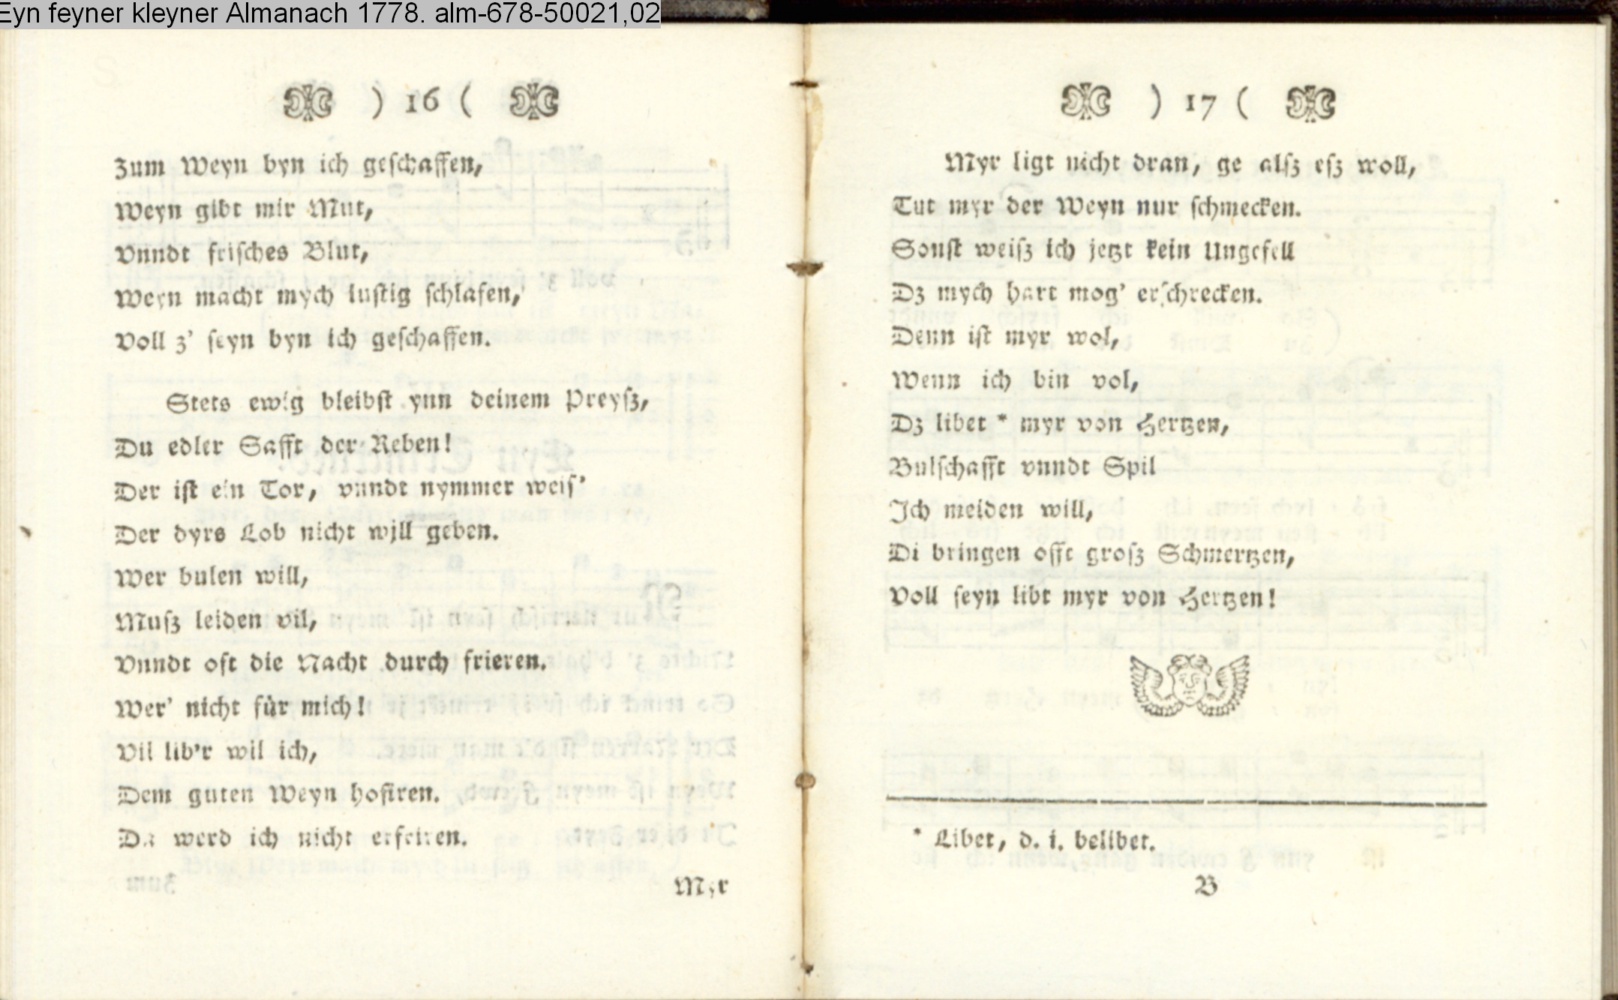 Eyn feyner kleyner Almanach 1778. alm-678-50021,02
) 16 (
Zum Weyn byn ich geschaffen,
Weyn gibt mir Mut,
Vnndt frisches Blut,
Weyn macht mych lustig schlafen,
Voll z' seyn byn ich geschaffen.
Stets ewig bleibst ynn deinem Preysz,
Du edler Safft der Reben!
Der ist ein Tor, vnndt nymmer weis'
Der dyrs Lob nicht will geben.
Wer bulen will,
Musz leiden vil,
Vnndt oft die Nacht durch frieren.
Wer' nicht für mich!
Vil lib'r wil ich,
Dem guten Weyn hofiren.
Da werd ich nicht erfriren.
Myr
) 17 (
Myr ligt nicht dran, ge alsz esz woll,
Tut myr der Weyn nur schmecken.
Sonst weisz ich jetzt kein Ungefell
Dz mych hart mog' erschrecken.
Denn ist myr wol,
Wenn ich bin vol,
Dz libet * myr von Hertzen,
Bulschafft vnndt Spil
Ich meiden will,
Di bringen offt grosz Schmertzen,
Voll seyn libt myr von Hertzen!
* Libet, d. i. belibet.
B